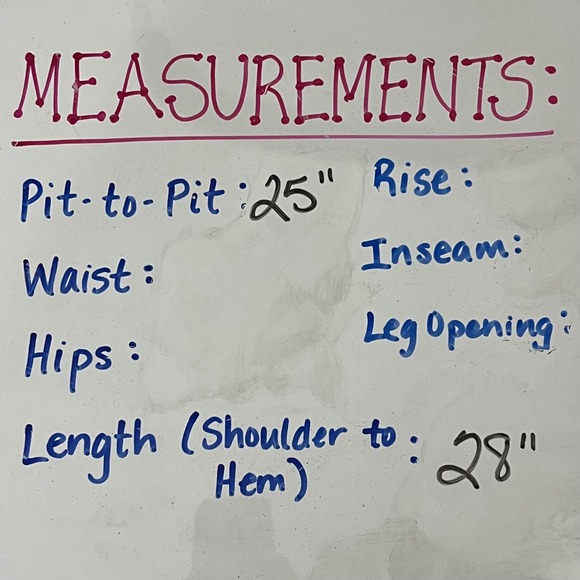 MEASUREMENTS:
Pit-to-Pit: 25"
Waist:
Hips:
Length (Shoulder to
Hem): 28"
Rise:
Inseam:
Leg Opening: